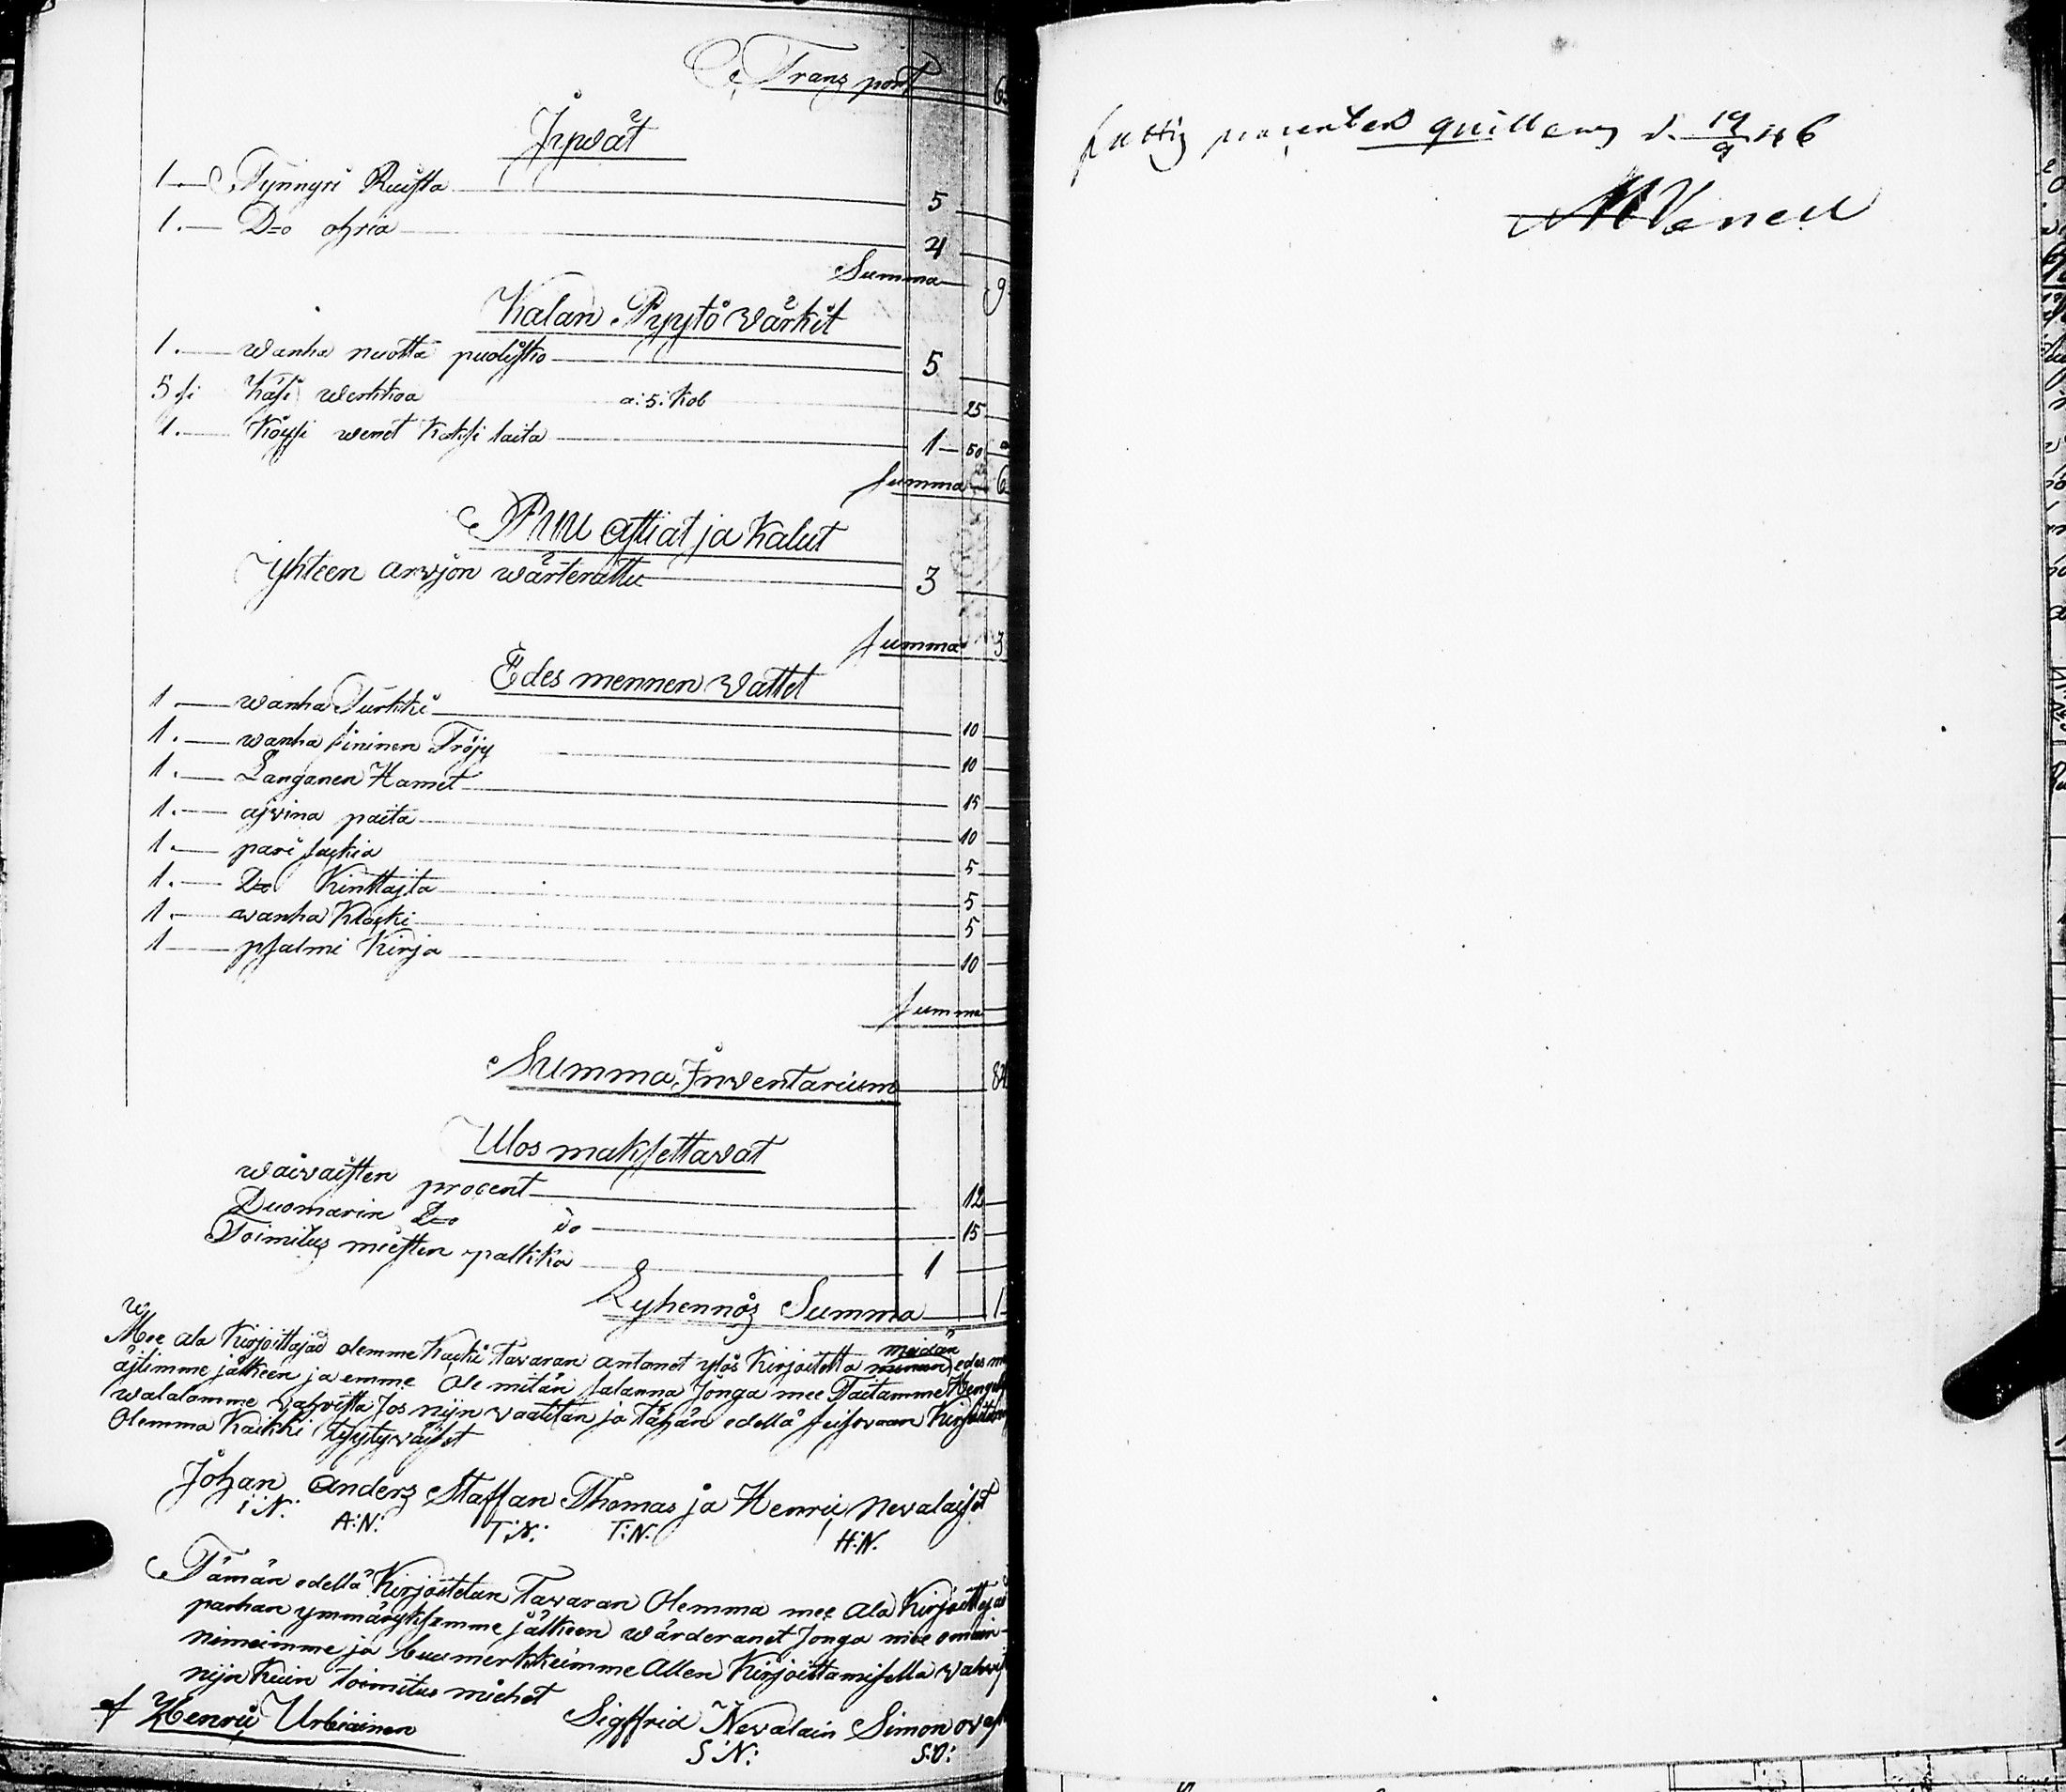 Transport 6
Jywät
1 — Tynnyri Ruista 5
1. — D=o ohria 4
Summa 9
Kalan Pyytö wärkit
1. — wanha nuotta puolisko 5
5 si Käsi werkkoa a: 5: Kob 25
1. — Köysi wenet Kaksi laita 1 — 50
Summa 6
Puu astiat ja Kalut
Yhteen arwjon wärterattu 3
Summa 3
Edes mennen wattet
1. — wanha Turkki 10
1. — wanha sininen Tröjy 10
1. — Langanen Hamet 15
1. — ajvina paita 10
1. — pari suckia 5
1. — D=o Kinttajta 5
1. — wanha Klacki 5
1 — psalmi Kirja 10
Summa
Summa Inventarium 84
Ulos maksettawat
waiwaisten procent 12
Duomarin D=o do 15
Toimitus miesten palkka 1
Lyhennös Summa 1
Mee ala Kirjoittajad olemme Kacki Tavaran antanet ylös Kirjoitetta meidän edes
äjtimme jälkeen ja emme Ole mitän salanna Jonga mee Taitamme
walalamme vahvista Jos nijn vaatitan ja tähän edellä seisovaan
Olemma Kaikki tyytyväjset
Johan Anders Staffan Thomas ja Henric Nevalajset
I:N: A:N: T:N: T:N: H:N.
Tämän edellä Kirjoitetan Tavaran Olemma mee ala Kirjoittajad
parhan ymmärryksemme jälkeen wärderanet Jonga mee omain
nimeimme ja buumerkkeimme Allen Kirjoittamisella
nijn Kuin toimitus miehet
af Henric Urbiainen Sigffrid Nevalain Simon
S:N: S:V:
fattig procenten quitteras d. 19/9 46
M Venell